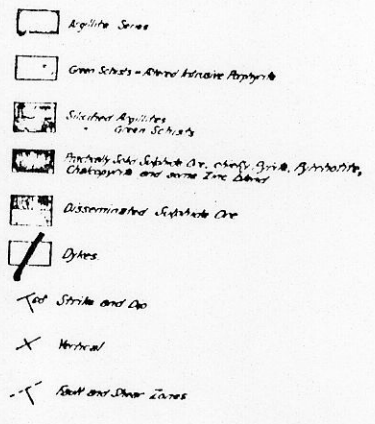 Argillite Series
Green Schists - Altered Intrusive Porphyrite
Silicified Argillites
" Green Schists
Practically Solid Sulphide Ore, chiefly Pyrite, Pyrrhotite,
Chalcopyrite and some Zinc
Disseminated Sulphide Ore
Dykes
60° Strike and Dip
Vertical
Fault and Shear Zones